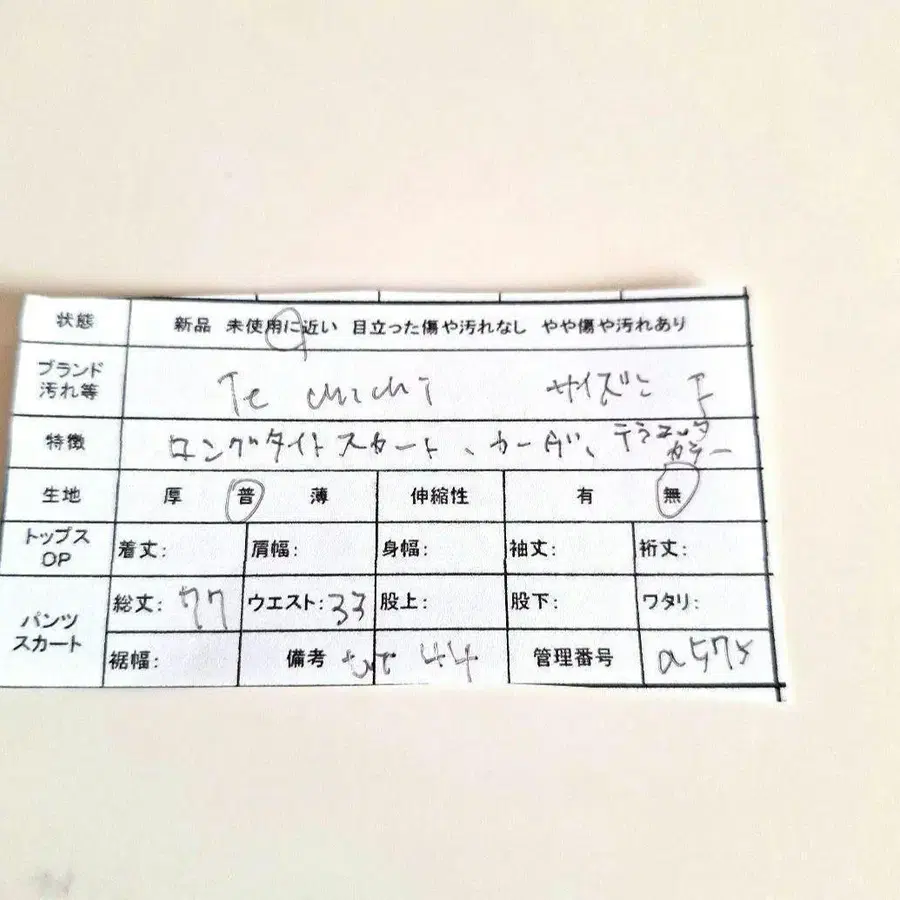 状態 新品 未使用に近い 目立った傷や汚れなし やや傷や汚れあり
ブランド
汚れ等 Te chichi サイズ F
特徴 ロングタイトスカート、カーゴ、
カラー
生地 厚 普 薄 伸縮性 有 無
トップス
OP 着丈: 肩幅: 身幅: 袖丈: 裄丈:
パンツ
スカート 総丈: 77 ウエスト: 33 股上: 股下: ワタリ:
裾幅: 備考 44 管理番号 a575